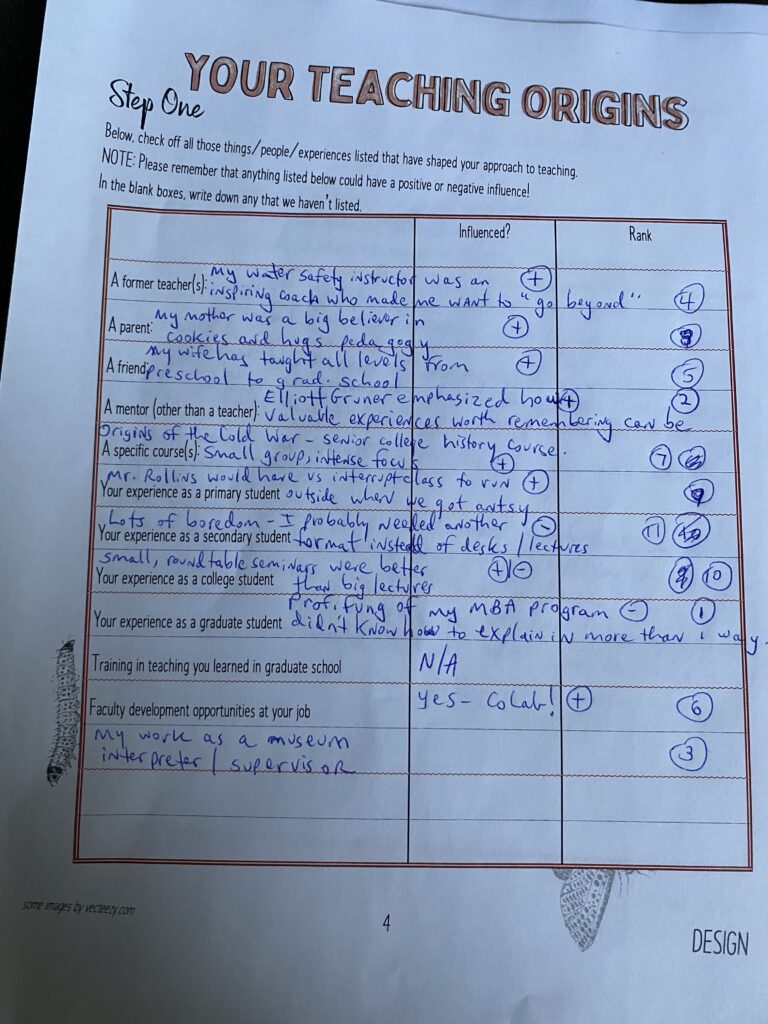 YOUR TEACHING ORIGINS
Step One
Below, check off all those things/people/experiences listed that have shaped your approach to teaching.
NOTE: Please remember that anything listed below could have a positive or negative influence!
In the blank boxes, write down any that we haven't listed.
Influenced? Rank
My water safety instructor was an +
A former teacher(s): inspiring coach who made me want to "go beyond" 4
My mother was a big believer in +
A parent: cookies and hugs pedagogy
My wife has taught all levels from +
A friend: preschool to grad. school 5
Elliott Gruner emphasized how + 2
A mentor (other than a teacher): valuable experiences worth remembering can be
Origins of the Cold War - senior college history course.
A specific course(s): Small group, intense focus + 7
Mr. Rollins would have us interrupt class to run +
Your experience as a primary student outside when we got antsy
Lots of boredom - I probably needed another - 11
Your experience as a secondary student format instead of desks/lectures
small, roundtable seminars were better +/- 10
Your experience as a college student than big lectures
Prof. Fung of my MBA program - 1
Your experience as a graduate student didn't know how to explain in more than 1 way.
Training in teaching you learned in graduate school N/A
Faculty development opportunities at your job yes - CoLab! + 6
My work as a museum
interpreter/supervisor 3
some images by vecteezy.com
4
DESIGN